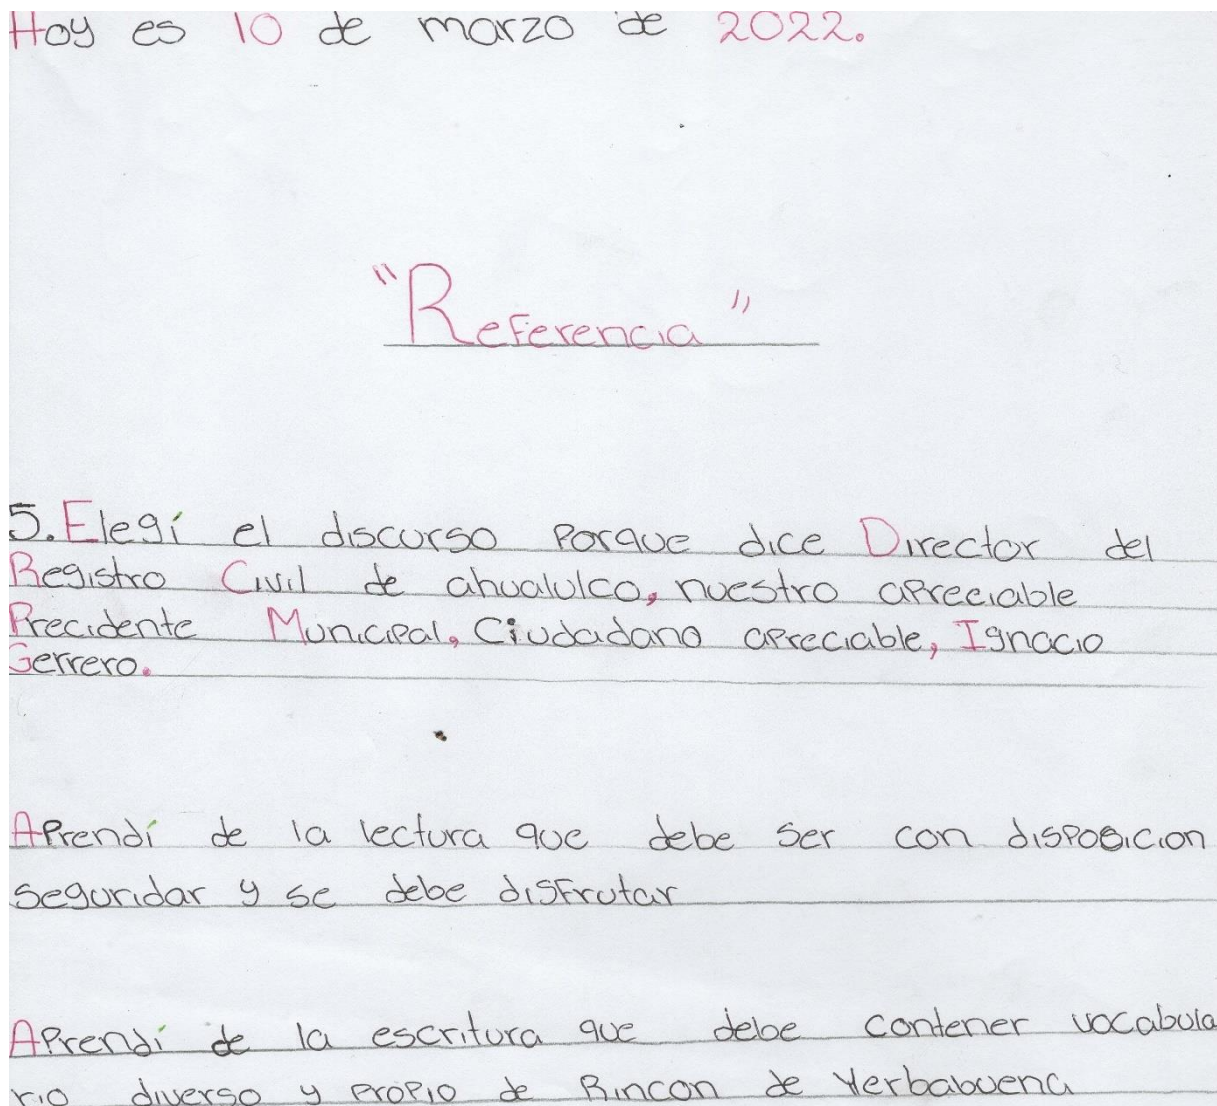 Hoy es 10 de marzo de 2022.
"Referencia"
5. Elegí el discurso porque dice Director del
Registro Civil de ahualulco, nuestro apreciable
Precidente Municipal, Ciudadano apreciable, Ignacio
Gerrero.
Aprendí de la lectura que debe ser con disposicion
seguridar y se debe disfrutar
Aprendí de la escritura que debe contener vocabula
rio diverso y propio de Rincon de Yerbabuena